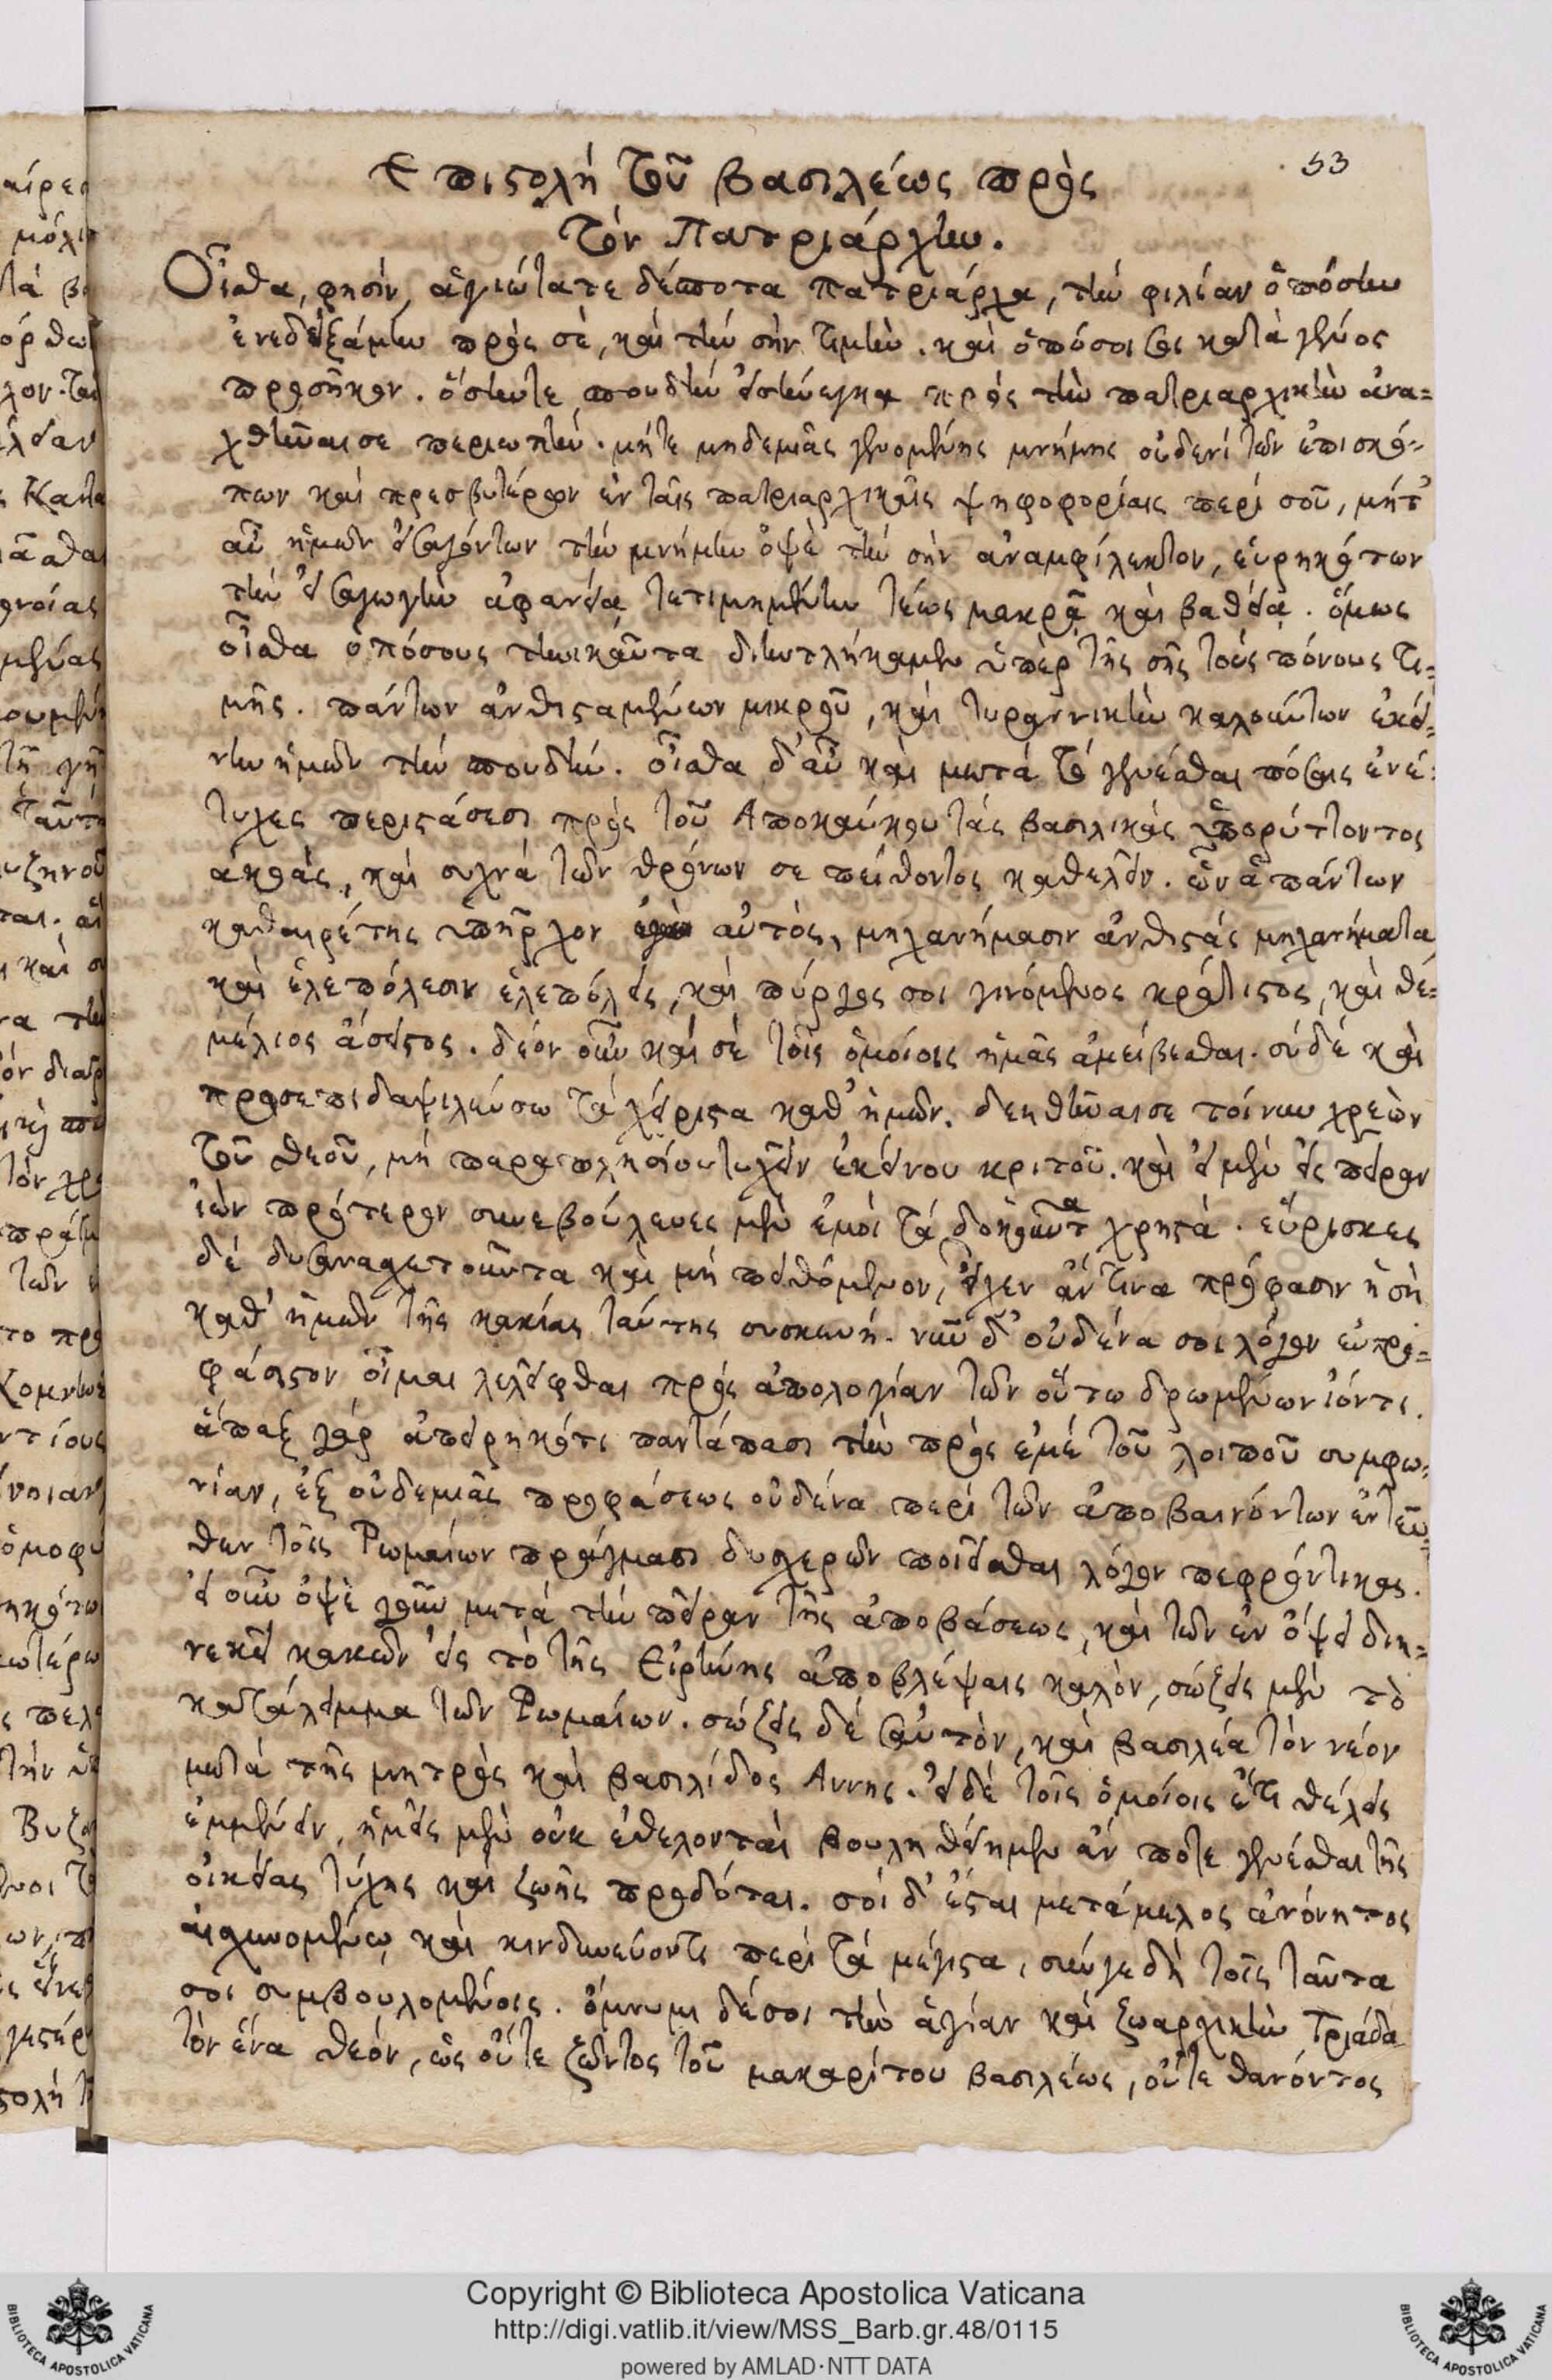 53
Επιστολή τοῦ βασιλέως πρὸς
τὸν Πατριάρχην.
Οἶσθα, φησὶν, ἁγιώτατε δέσποτα πατριάρχα, τὴν φιλίαν ὁπόσην
ἐνεδειξάμην πρὸς σὲ, καὶ τὴν σὴν τιμὴν. καὶ ὁπόσοι σοι κατὰ γένος
προσῆκον. ὅσην τε σπουδὴν εἰσήνεγκα πρὸς τὴν πατριαρχικὴν ἀνα=
χθῆναι σε περιωπὴν. μήτε μηδεμιᾶς γενομένης μνήμης οὐδενὶ τῶν ἐπισκό=
πων καὶ πρεσβυτέρων ἐν ταῖς πατριαρχικαῖς ψηφοφορίαις περὶ σοῦ, μήτ'
αὖ ἡμῶν εἰσαγόντων τὴν μνήμην ὀψὲ τὴν σὴν ἀναμφίλεκτον, εὑρηκότων
τὴν εἰσαγωγὴν ἀφανεία τετιμημένην τέως μακρᾷ καὶ βαθείᾳ. ὅμως
οἶσθα ὁπόσους τηνικαῦτα διηντλήκαμεν ὑπὲρ τῆς σῆς τοὺς πόνους τι=
μῆς. πάντων ἀνθισταμένων μικροῦ, καὶ τυραννικὴν καλούντων ἐκεί=
νην ἡμῶν τὴν σπουδὴν. οἶσθα δ' αὖ καὶ μετὰ τὸ γενέσθαι πόσαις ἐνέ=
τυχες περιστάσεσι πρὸς τοῦ Αποκαύκου τὰς βασιλικὰς ὑπορύττοντος
ἀκοὰς, καὶ συχνὰ τῶν θρόνων σε πείθοντος καθελεῖν. ὧν ἁπάντων
καθαιρέτης ὑπῆρχον αὐτὸς, μηχανήμασιν ἀνθιστὰς μηχανήματα
καὶ ἑλεπόλεσιν ἑλεπόλεις, καὶ πύργος σοι γινόμενος κράτιστος, καὶ θε=
μέλιος ἄσειστος. δέον οὖν καὶ σὲ τοῖς ὁμοίοις ἡμᾶς ἀμείβεσθαι. σὺ δὲ καὶ
προσεπιδαψιλεύσω τὰ χείριστα καθ' ἡμῶν. δεηθῆναι σε τοίνυν χρεὼν
τοῦ θεοῦ, μὴ παραπλησίου τυχεῖν ἐκείνου κριτοῦ. καὶ εἰ μὲν εἰς πεῖραν
ἰὼν πρότερον συνεβούλευες μὲν ἐμοὶ τὰ δοκοῦντα χρηστὰ. εὕρισκες
δὲ δυσανασχετοῦντα καὶ μὴ πειθόμενον, εἶχεν ἄν τινα πρόφασιν ἡ σὴ
καθ' ἡμῶν τῆς κακίας ταύτης συσκευή. νῦν δ' οὐδένα σοι λόγον εὐπρο=
φάσιστον οἶμαι λελεῖφθαι πρὸς ἀπολογίαν τῶν οὕτω δρωμένων ἰόντι.
ἅπαξ γὰρ ἀπειρηκότι παντάπασι τὴν πρὸς ἐμὲ τοῦ λοιποῦ συμφω=
νίαν, ἐξ οὐδεμιᾶς προφάσεως οὐδένα περὶ τῶν ἀποβαινόντων ἐντεῦ=
θεν τοῖς Ρωμαίων πράγμασι δυσχερῶν ποιεῖσθαι λόγον πεφρόντικας.
εἰ οὖν ὀψὲ γοῦν μετὰ τὴν πεῖραν τῆς ἀποβάσεως, καὶ τῶν ἐν ὄψει διη=
νεκεῖ κακῶν εἰς τὸ τῆς Εἰρήνης ἀποβλέψαις καλὸν, σώζεις μὲν τὸ
κατάλειμμα τῶν Ρωμαίων. σώζεις δὲ σαυτὸν, καὶ βασιλέα τὸν νέον
μετὰ τῆς μητρὸς καὶ βασιλίδος Αννης. εἰ δὲ τοῖς ὁμοίοις ἔτι θέλεις
ἐμμένειν, ἡμεῖς μὲν οὐκ ἐθελονταὶ βουληθείημεν ἄν ποτε γενέσθαι τῆς
οἰκείας τύχης καὶ ζωῆς προδόται. σοὶ δ' ἔσται μετάμελος ἀνόνητος
αἰσχυνομένῳ καὶ κινδυνεύοντι περὶ τὰ μέγιστα, σύν γε δὴ τοῖς ταῦτα
σοι συμβουλομένοις. ὄμνυμι δέ σοι τὴν ἁγίαν καὶ ζωαρχικὴν Τριάδα
τὸν ἕνα θεόν, ὡς οὔτε ζῶντος τοῦ μακαρίτου βασιλέως, οὔτε θανόντος
Copyright © Biblioteca Apostolica Vaticana
http://digi.vatlib.it/view/MSS_Barb.gr.48/0115
powered by AMLAD·NTT DATA
BIBLIOTECA APOSTOLICA VATICANA
BIBLIOTECA APOSTOLICA VATICANA